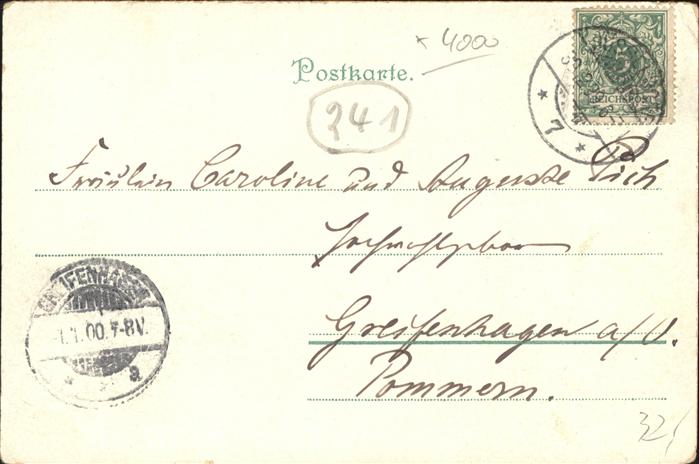 * 4000
Postkarte.
REICHSPOST
7
241
Fräulein Caroline und Auguste Pich
Greifenhagen a/O.
Pommern.
GREIFENHAGEN
1.1.00.7-8V.
a
32